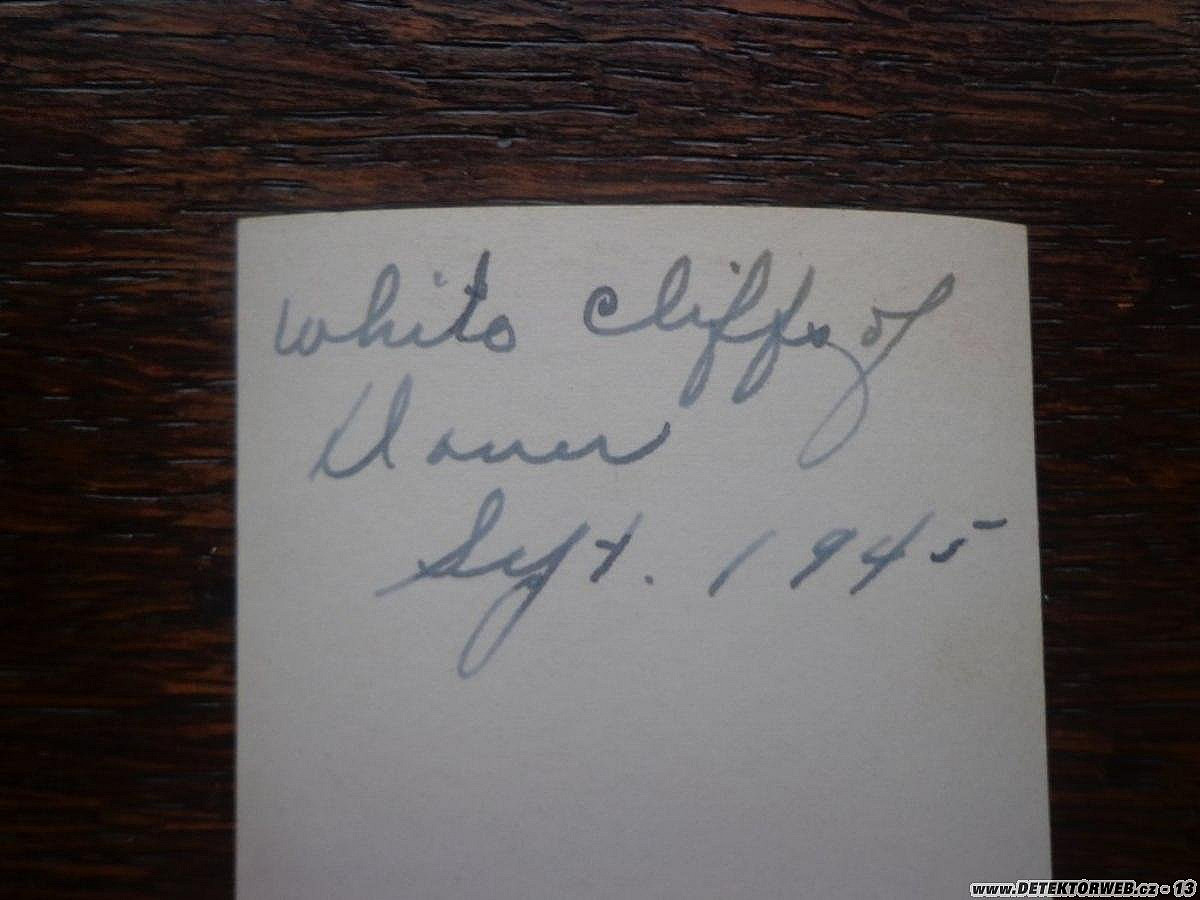 White Cliffs of
Dover
Sept. 1945
www.DETEKTORWEB.cz - 13